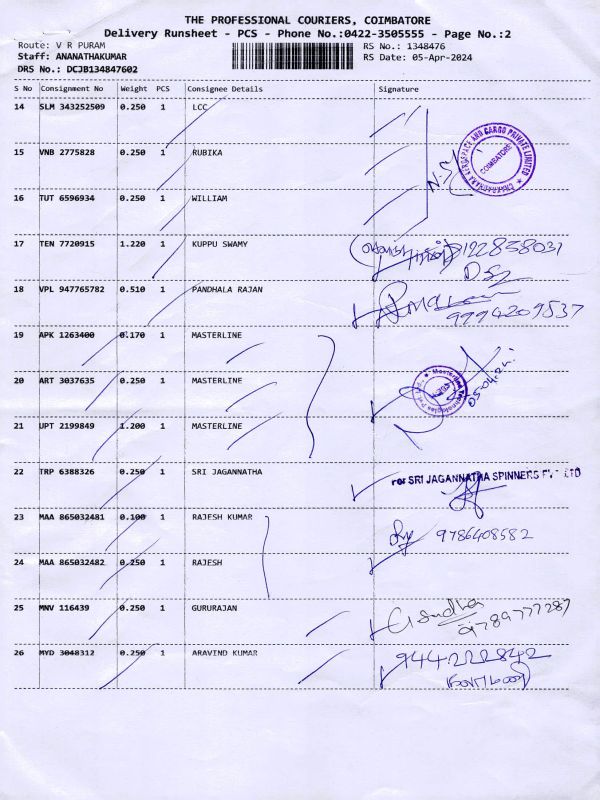 THE PROFESSIONAL COURIERS, COIMBATORE
Delivery Runsheet - PCS - Phone No.:0422-3505555 - Page No.:2
Route: V R PURAM
RS No.: 1348476
Staff: ANANATHAKUMAR
RS Date: 05-Apr-2024
DRS No.: DCJB134847602
S No Consignment No Weight PCS Consignee Details Signature
14 SLM 343252509 0.250 1 LCC
15 VNB 2775828 0.250 1 RUBIKA
16 TUT 6596934 0.250 1 WILLIAM
COIMBATORE
17 TEN 7720915 1.220 1 KUPPU SWAMY
18 VPL 947765782 0.510 1 PANDHALA RAJAN
9994209537
19 APK 1263400 0.170 1 MASTERLINE
20 ART 3037635 0.250 1 MASTERLINE
21 UPT 2199849 1.200 1 MASTERLINE
22 TRP 6388326 0.250 1 SRI JAGANNATHA
For SRI JAGANNATHA SPINNERS PVT LTD
23 MAA 865032481 0.100 1 RAJESH KUMAR
9786408582
24 MAA 865032482 0.250 1 RAJESH
25 MNV 116439 0.250 1 GURURAJAN
9789777287
26 MYD 3048312 0.250 1 ARAVIND KUMAR
944222842